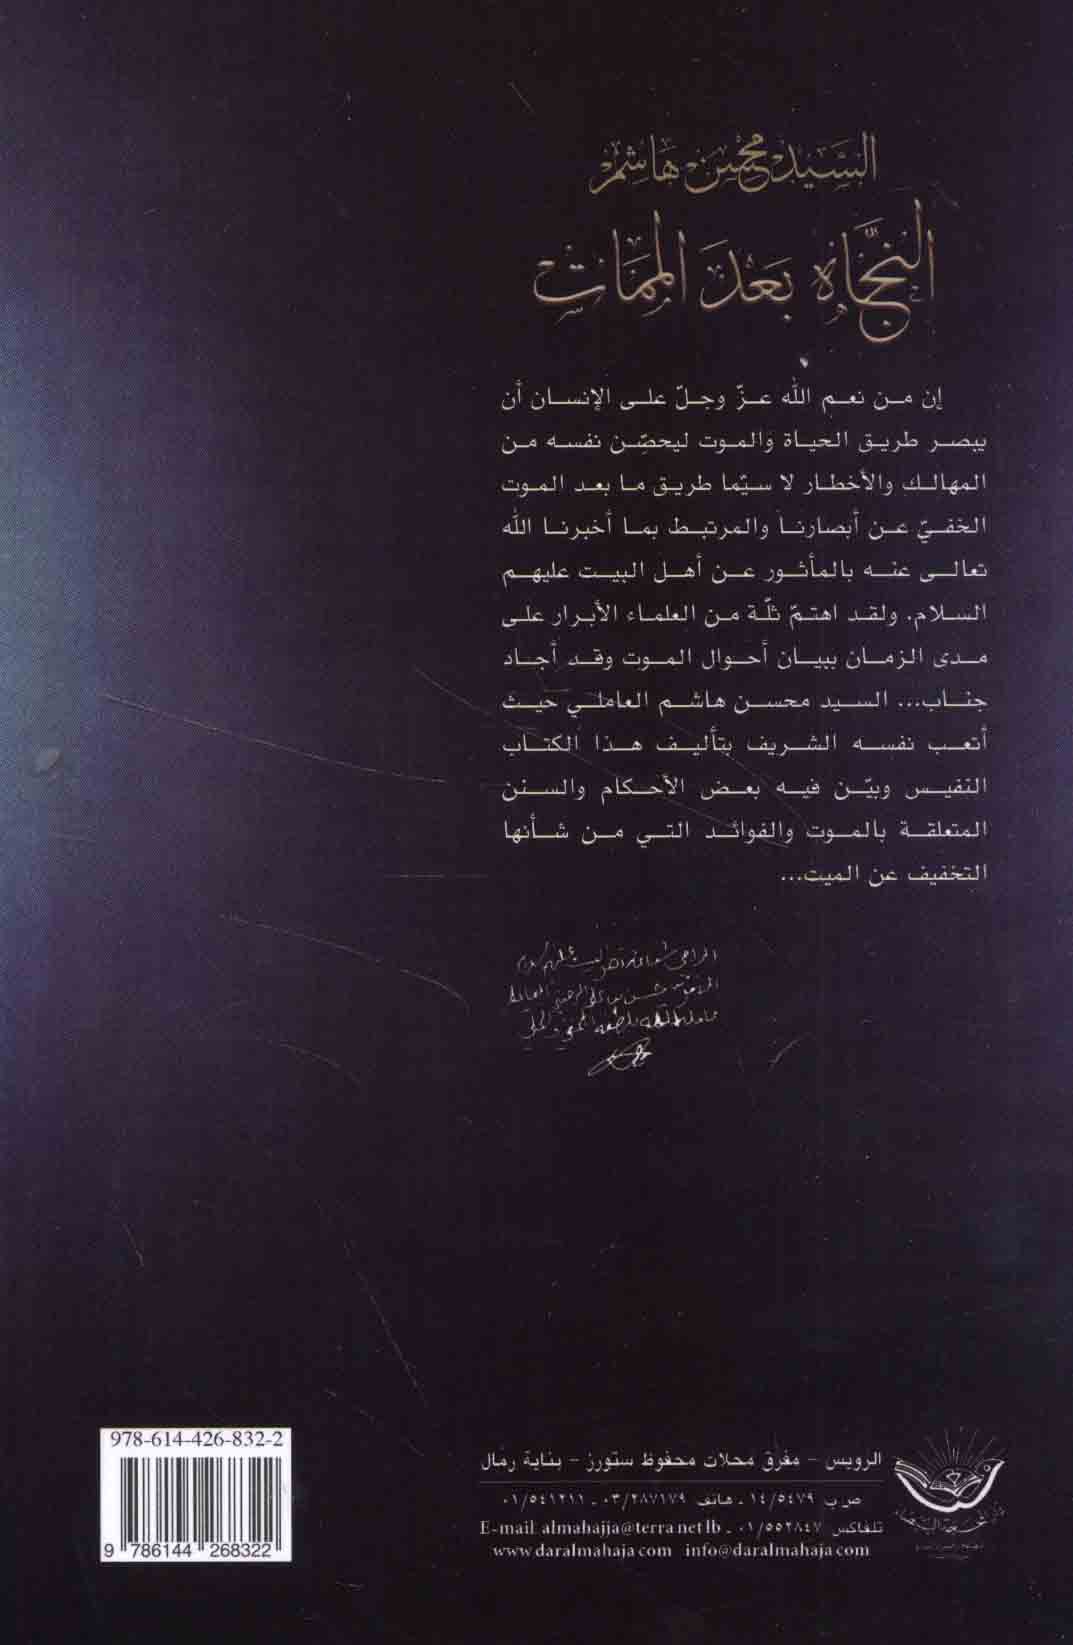 السيد محسن هاشم
النجاة بعد الممات
إن من نعم الله عزّ وجلّ على الإنسان أن
يبصر طريق الحياة والموت ليحصّن نفسه من
المهالك والأخطار لا سيّما طريق ما بعد الموت
الخفيّ عن أبصارنا والمرتبط بما أخبرنا الله
تعالى عنه بالمأثور عن أهل البيت عليهم
السلام. ولقد اهتمّ ثلّة من العلماء الأبرار على
مدى الزمان ببيان أحوال الموت وقد أجاد
جناب... السيد محسن هاشم العاملي حيث
أتعب نفسه الشريف بتأليف هذا الكتاب
النفيس وبيّن فيه بعض الأحكام والسنن
المتعلقة بالموت والفوائد التي من شأنها
التخفيف عن الميت...
978-614-426-832-2
9 786144 268322
الرويس - مفرق محلات محفوظ ستورز - بناية رمال
ص ب ١٤/٥٤٧٩ - هاتف ٠٣/٢٨٧١٧٩ - ٠١/٥٤١٢١١
تلفاكس ٠١/٥٥٢٨٤٧ - E-mail almahajja@terra.net.lb
www.daralmahaja.com info@daralmahaja.com